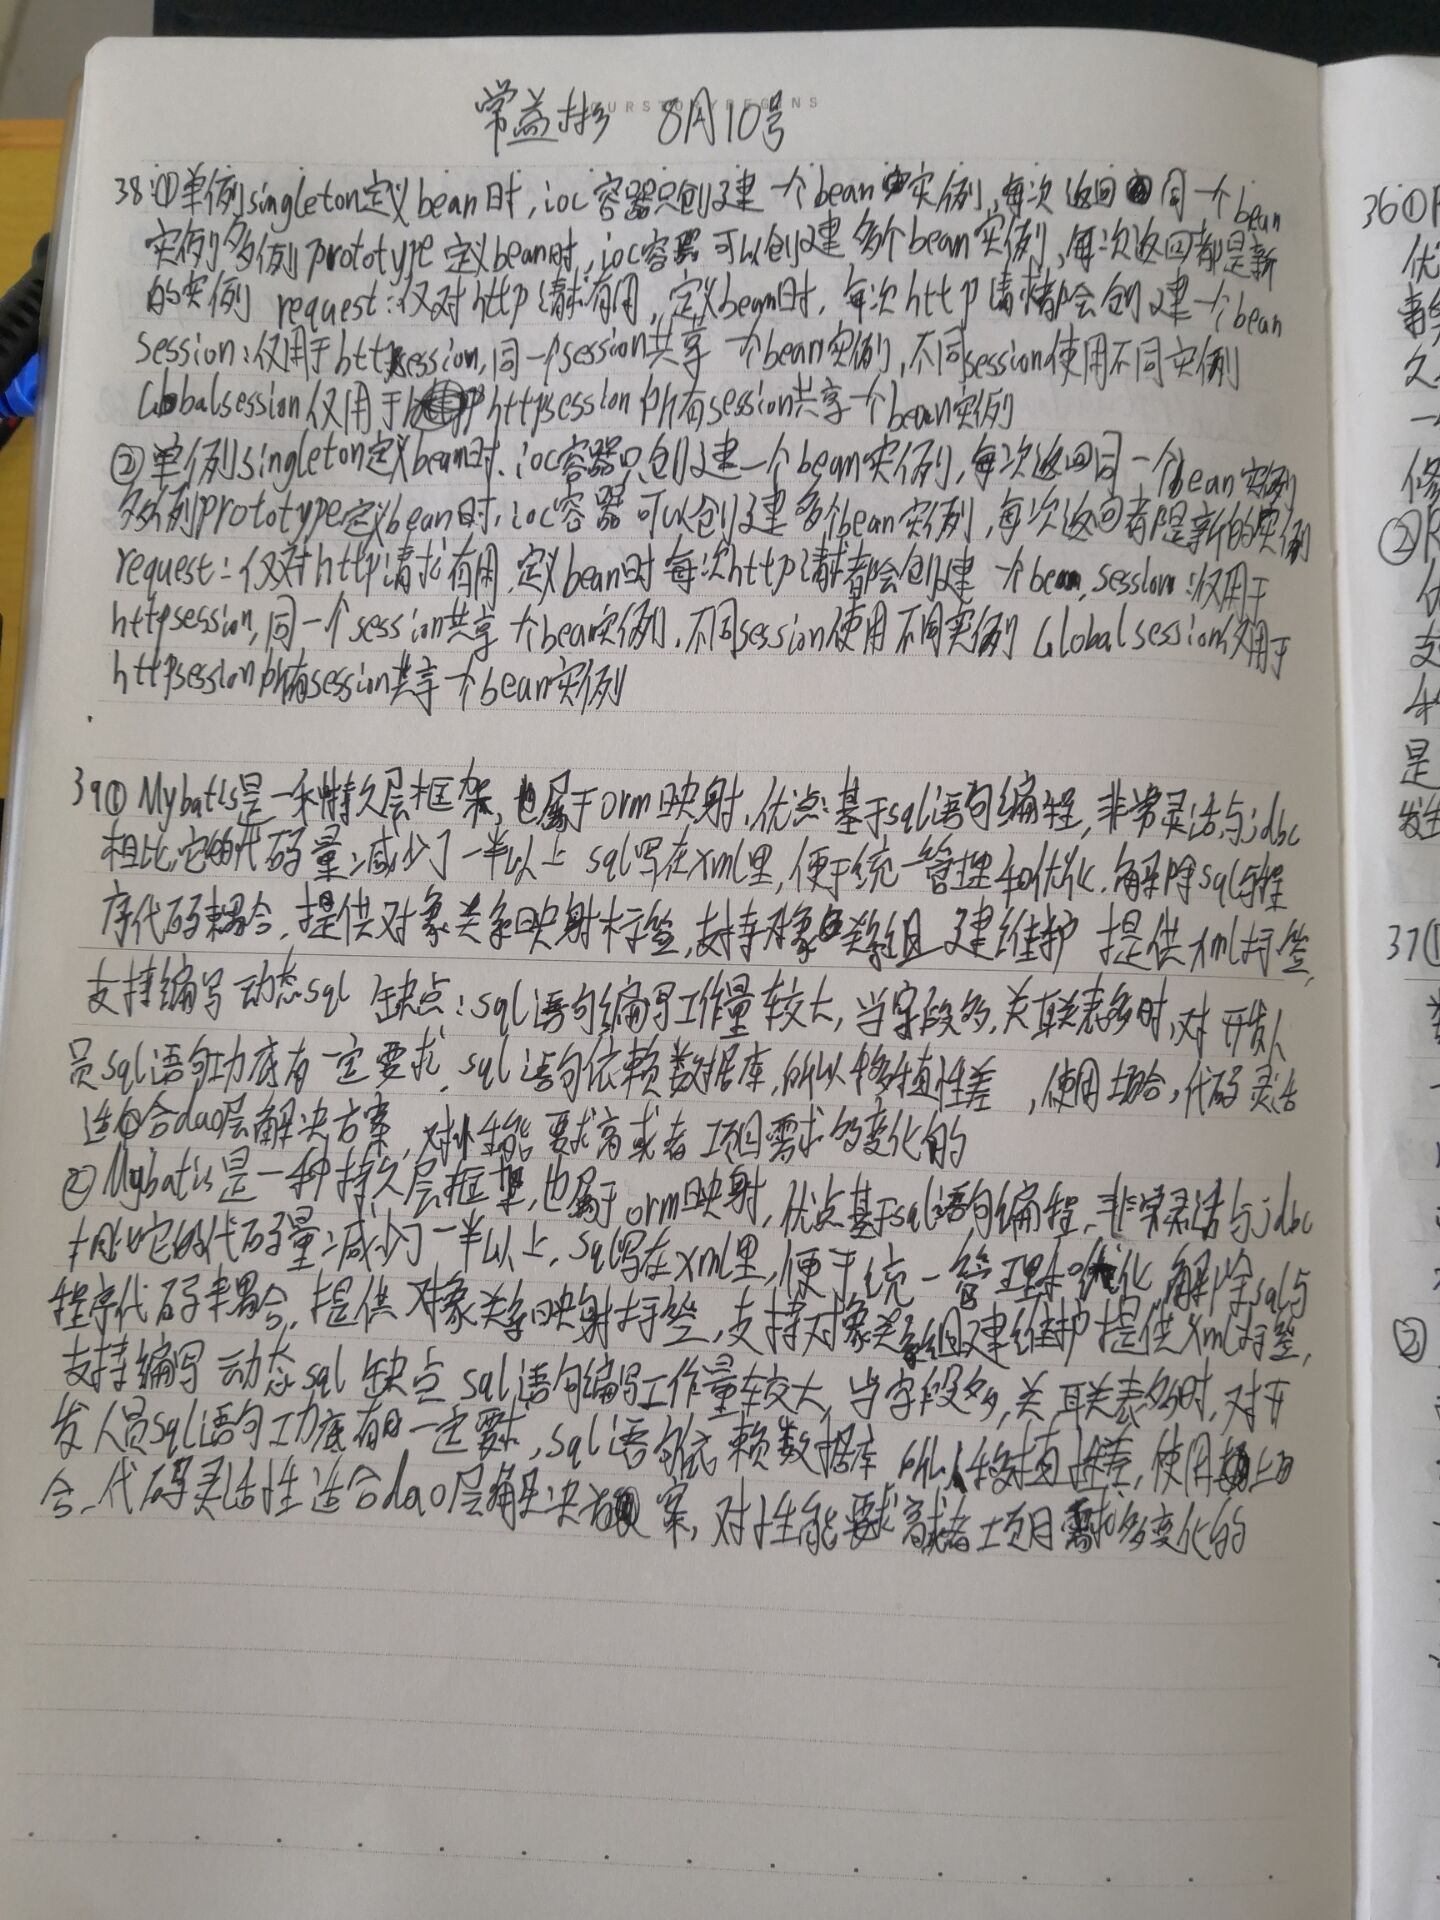 常益彬 8月10号
38.①单例singleton定义bean时,ioc容器只创建一个bean实例,每次返回同一个bean
实例多例prototype定义bean时,ioc容器可以创建多个bean实例,每次返回都是新
的实例 request:仅对http请求有用,定义bean时,每次http请求都会创建一个bean
session:仅用于httpsession,同一个session共享一个bean实例,不同session使用不同实例
Globalsession仅用于httpsession所有session共享一个bean实例
②单例singleton定义bean时,ioc容器只创建一个bean实例,每次返回同一个bean实例
多例prototype定义bean时,ioc容器可以创建多个bean实例,每次返回都是新的实例
request:仅对http请求有用,定义bean时每次http请求都会创建一个bean,session:仅用于
httpsession,同一个session共享一个bean实例,不同session使用不同实例 Globalsession仅用于
httpsession所有session共享一个bean实例
39① Mybatis是一种持久层框架,也属于orm映射,优点:基于sql语句编程,非常灵活与jdbc
相比,它的代码量减少了一半以上 sql写在xml里,便于统一管理和优化,解除sql与程
序代码耦合,提供对象关系映射标签,支持对象关系组建维护 提供xml标签,
支持编写动态sql 缺点:sql语句编写工作量较大,当字段多,关联表多时,对开发人
员sql语句功底有一定要求,sql语句依赖数据库,所以移植性差,使用场合,代码灵活
适合dao层解决方案,对性能要求高或者项目需求多变化的
②Mybatis是一种持久层框架,也属于orm映射,优点基于sql语句编程,非常灵活与jdbc
相比它的代码量减少了一半以上,sql写在xml里,便于统一管理和优化,解除sql与
程序代码耦合,提供对象关系映射标签,支持对象关系组建维护提供xml标签,
支持编写动态sql 缺点 sql语句编写工作量较大,当字段多,关联表多时,对开
发人员sql语句功底有一定要求,sql语句依赖数据库 所以移植性差,使用场
合,代码灵活性适合dao层解决方案,对性能要求高或者项目需求多变化的
36①
②
37①
②